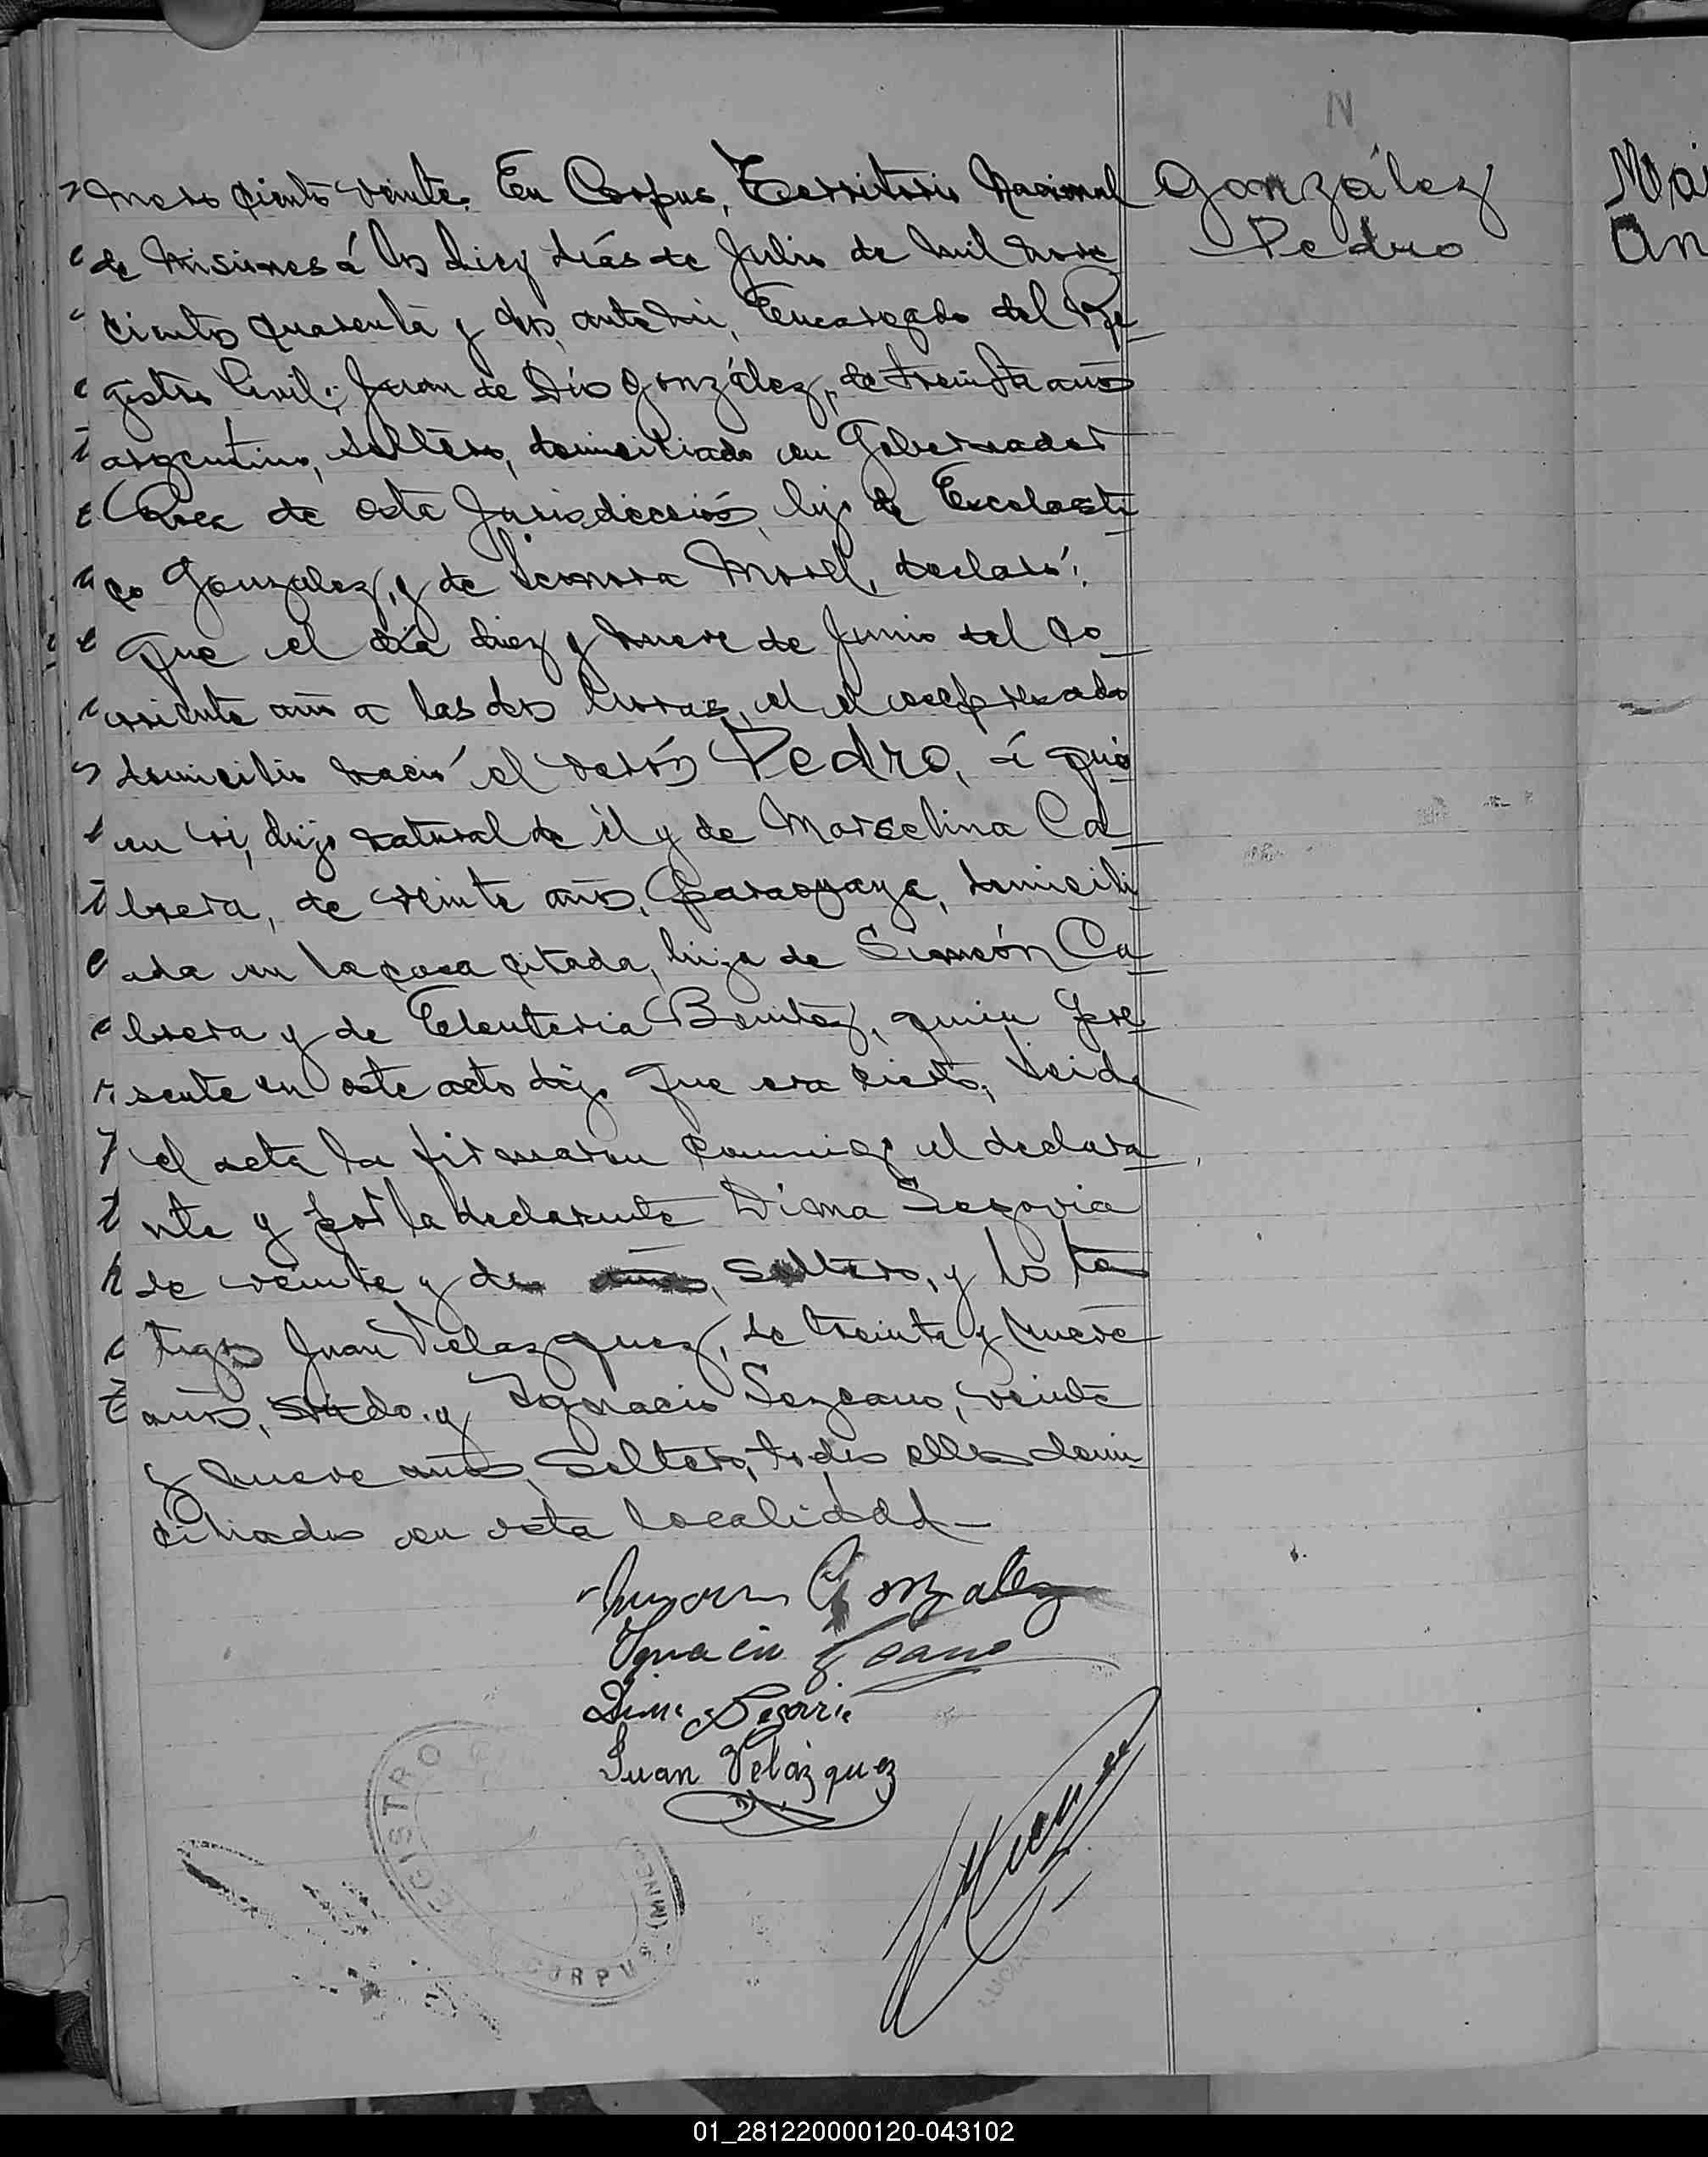 N
González
Pedro
mero ciento veinte. En Corpus, Territorio Nacional
de Misiones á los diez días de Julio de mil nove
cientos cuarenta y dos, ante mi, Encargado del Re
gistro Civil; Juan de Dios González, de treinta años
argentino, soltero, domiciliado en Gobernador
Roca de esta Jurisdicción, hijo de Escolasti
co Gonzalez, y de Leonora Morel, declaró:
Que el día diez y nueve de Junio del co
rriente año a las dos horas, el el expresado
domicilio nació el varón Pedro, á qui
en vi, hijo natural de él y de Marcelina Ca
brera, de veinte años, paraguaya, domicili
ada en la casa citada, hija de Simeón Ca
brera y de Eleuteria Benitez, quien pre
sente en este acto dijo que era cierto, Leida
el acta la firmaron conmigo el declara
nte y por la declarante Dima Segovia
de veinte y dos años, soltero, y los tes
tigos Juan Velazquez, de treinta y nueve
años, viudo y Ignacio Lezcano, veinte
y nueve años, soltero, todos ellos domi
ciliados en esta localidad
Gonzalez
Ignacio Lezcano
Dima Segovia
Juan Velázquez
REGISTRO
CORPUS (MNES)
Mar
An
01_281220000120-043102